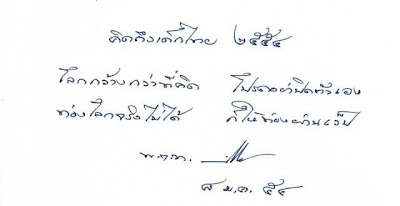 คิดถึงเด็กไทย ๒๕๕๔
โลกกว้างกว่าที่คิด โปรดอย่าปิดตัวเอง
ท่องโลกจริงไม่ได้ ก็ให้ท่องผ่านเว็บ
พ.ต.ท.
๘ ม.ค. ๕๔